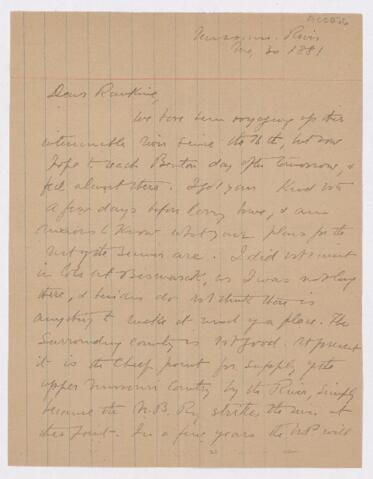 Missouri River
May 30 1881
Dear Rankine,
We have been voyaging up this
interminable river since the 16th, but now
hope to reach Benton day after tomorrow, &
feel almost there. I got your kind note
a few days before leaving home, & am
anxious to know what your plans for the
rest of the summer are. I did not invest
in lots at Bismarck, as I was not long
there, & besides do not think there is
anything to make it much of a place. The
surrounding country is not good. At present
it is the chief point for supply of the
upper Missouri Country by the River, simply
because the N.P. Ry strikes the river at
this point. In a few years the NP will